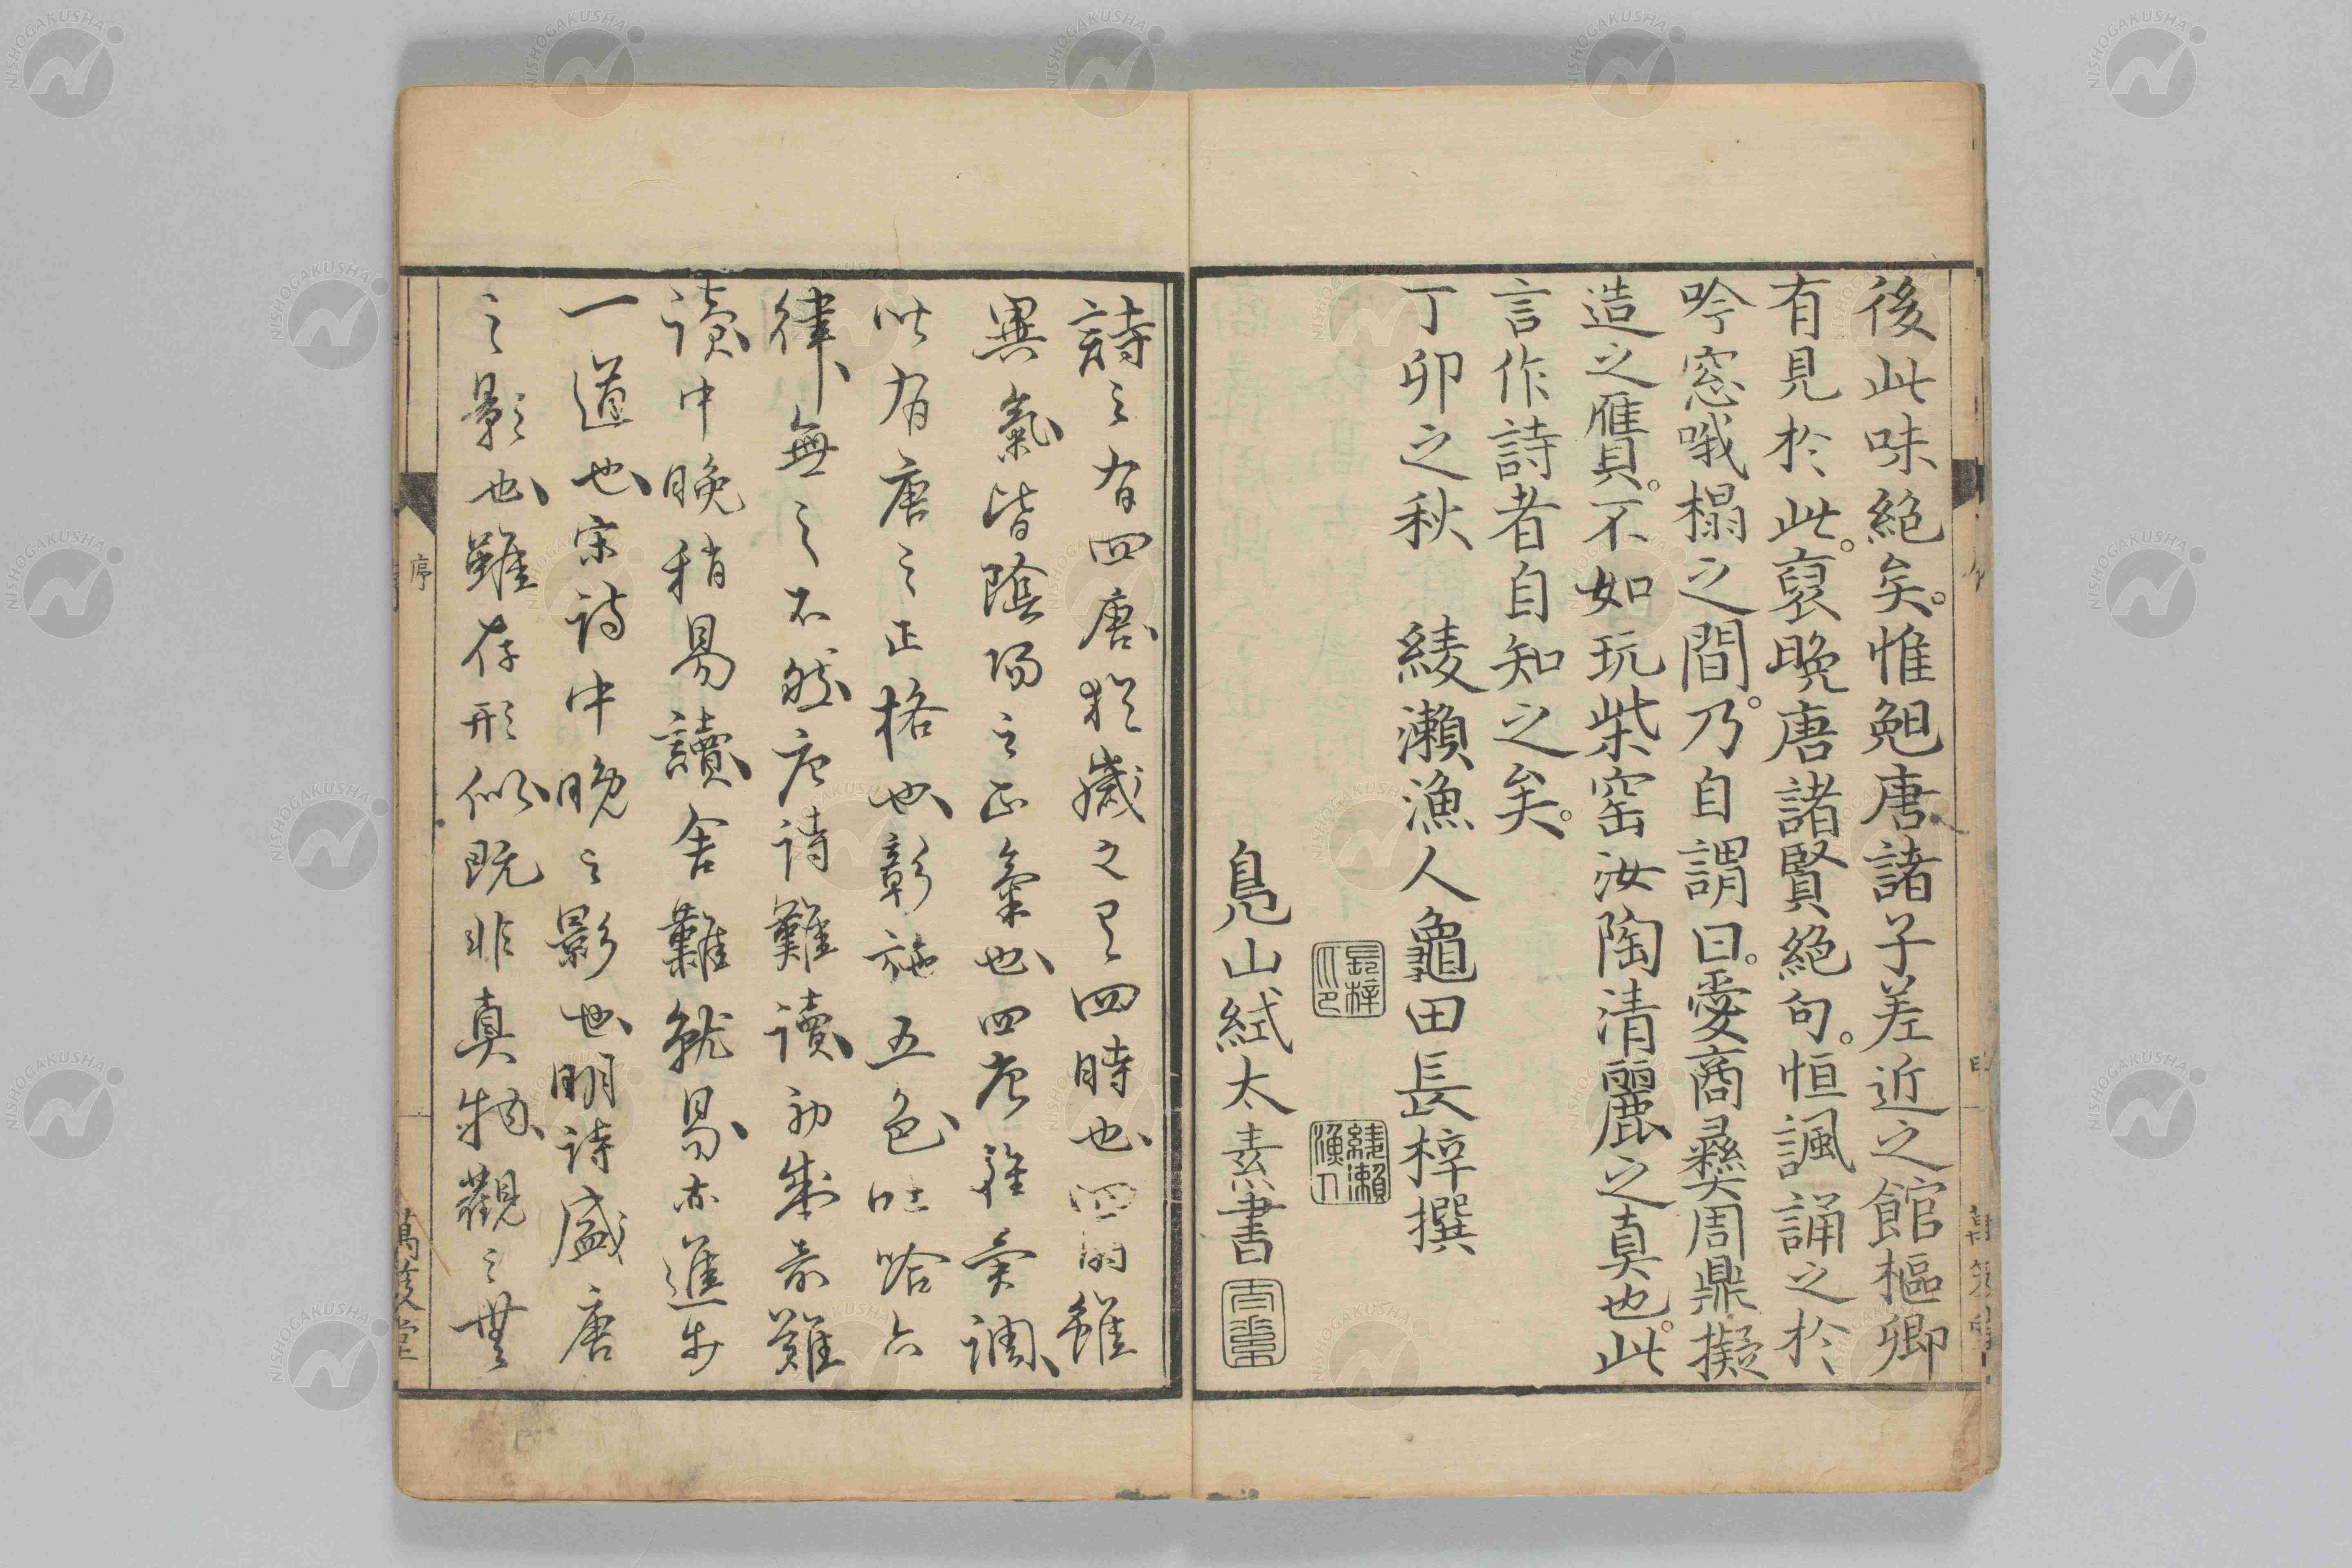 後此味絶矣。惟䱉唐諸子差近之館樞卿
有見於此。裒晩唐諸賢絶句。恒諷誦之於
吟窓哦榻之間。乃自謂曰。愛商彝周鼎擬
造之贋。不如玩柴窑汝陶清麗之真也。此
言作詩者自知之矣。
丁卯之秋 綾瀬漁人龜田長梓撰
長梓之印
綾瀬漁人
鳧山絃太素書
詩之有四唐猶歳之有四時也四時雖
異氣皆陰陽之正氣也四唐雖異調
皆有唐之正格也彰施五色吐唅六
律無之不然唐詩難讀初盛尤難
讀中晩稍易讀舍難就易亦進步
一道也宋詩中晩之影也明詩盛唐
之影也雖存形似既非真物觀之無
序
一
萬笈堂
NISHOGAKUSHA